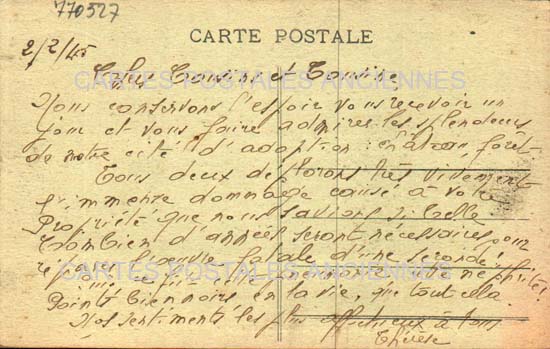 770527
CARTE POSTALE
2/2/45
Chers Cousine et Cousin
CARTES POSTALES ANCIENNES
Nous conservons l'espoir vous recevoir un
jour et vous faire admirer les splendeurs
de notre cité d'adoption : château forêt.
Tous deux déplorons très vivement
l'immense dommage causé à votre
Propriété que nous savions si belle
Combien d'années seront nécessaires pour
l'œuvre fatale d'une seconde!
CARTES POSTALES ANCIENNES
Points bien noirs, en la vie, que tout cela.
Nos sentiments les plus affectueux à tous
Thérèse